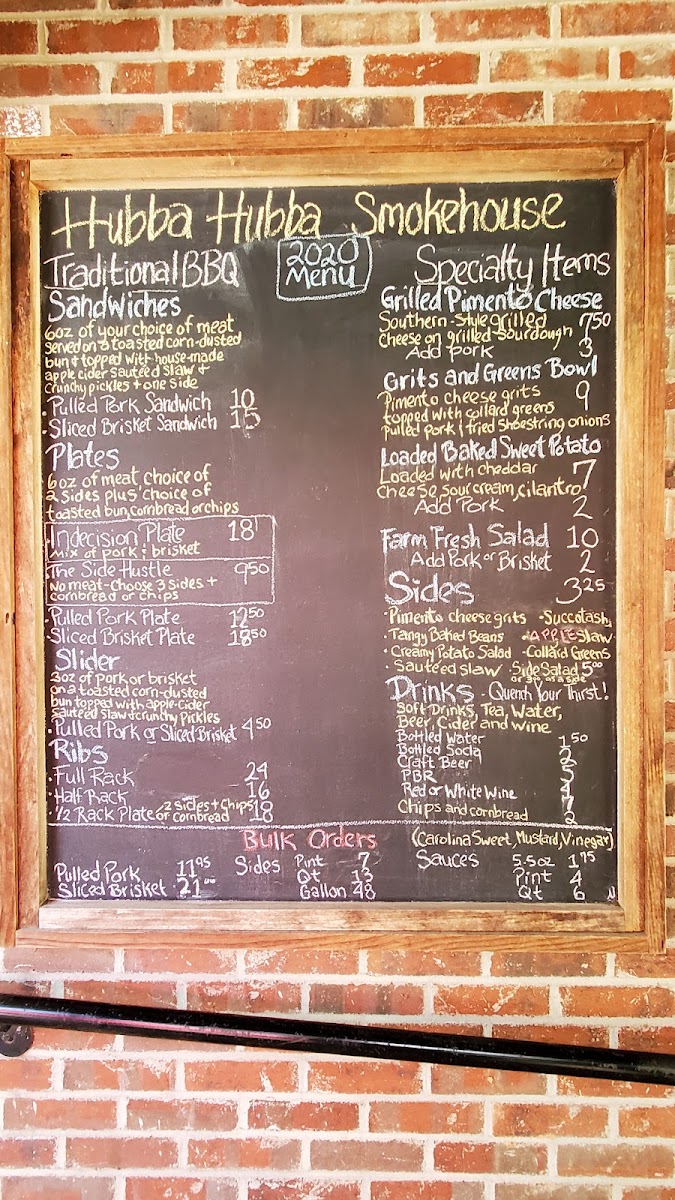 Hubba Hubba Smokehouse
2020 Menu
Traditional BBQ
Sandwiches
6oz of your choice of meat
served on a toasted corn-dusted
bun & topped with house-made
apple cider sauteed slaw +
crunchy pickles + one side
• Pulled Pork Sandwich 10
• Sliced Brisket Sandwich 15
Plates
6oz of meat choice of
2 sides plus choice of
toasted bun, cornbread or chips
• Indecision Plate 18
mix of pork & brisket
• The Side Hustle 9.50
No meat-choose 3 sides +
cornbread or chips
• Pulled Pork Plate 50
• Sliced Brisket Plate 18.50
Slider
3oz of pork or brisket
on a toasted corn-dusted
bun topped with apple-cider
sauteed slaw + crunchy pickles
• Pulled Pork or Sliced Brisket 4.50
Ribs
• Full Rack 24
• Half Rack 16
• 1/2 Rack Plate 2 sides + chips or cornbread 18
Specialty Items
Grilled Pimento Cheese
Southern-style grilled 7.50
cheese on grilled sourdough
Add pork 3
Grits and Greens Bowl
Pimento cheese grits 9
topped with collard greens
pulled pork & fried shoestring onions
Loaded Baked Sweet Potato
Loaded with cheddar 7
cheese, sour cream, cilantro
Add Pork 2
Farm Fresh Salad 10
Add Pork or Brisket 2
Sides 3.25
• Pimento cheese grits - Succotash
• Tangy Baked Beans - APPLE Slaw
• Creamy Potato Salad - Collard Greens
• Sauteed slaw - Side Salad 5.00
or 3.75 as a side
Drinks - Quench Your Thirst!
Soft Drinks, Tea, Water,
Beer, Cider and wine
Bottled Water 1.50
Bottled Soda 2
Craft Beer 5
PBR 4
Red or White Wine 7
Chips and cornbread 2
Bulk Orders
Pulled Pork 11.95
Sliced Brisket 21.00
Sides Pint 7
Qt 13
Gallon 48
(Carolina Sweet, Mustard, Vinegar)
Sauces 5.5oz 1.75
Pint 4
Qt 6